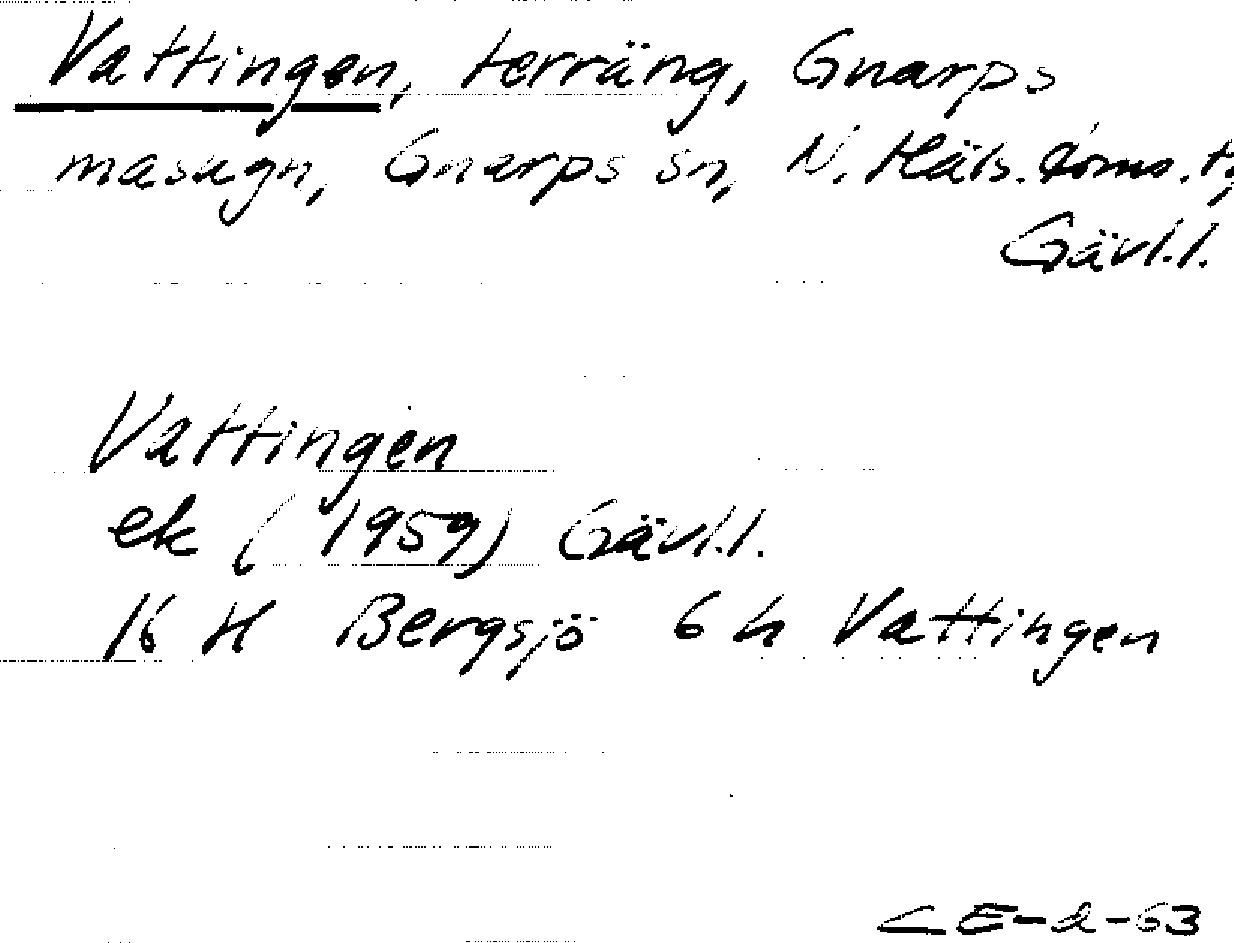 Vattingen, terräng, Gnarps
masugn, Gnarps sn, N. Häls. doms. t,
Gävl.l.
Vattingen
ek (1959) Gävl.l.
16 H Bergsjö 6 h Vattingen
CE-2-63